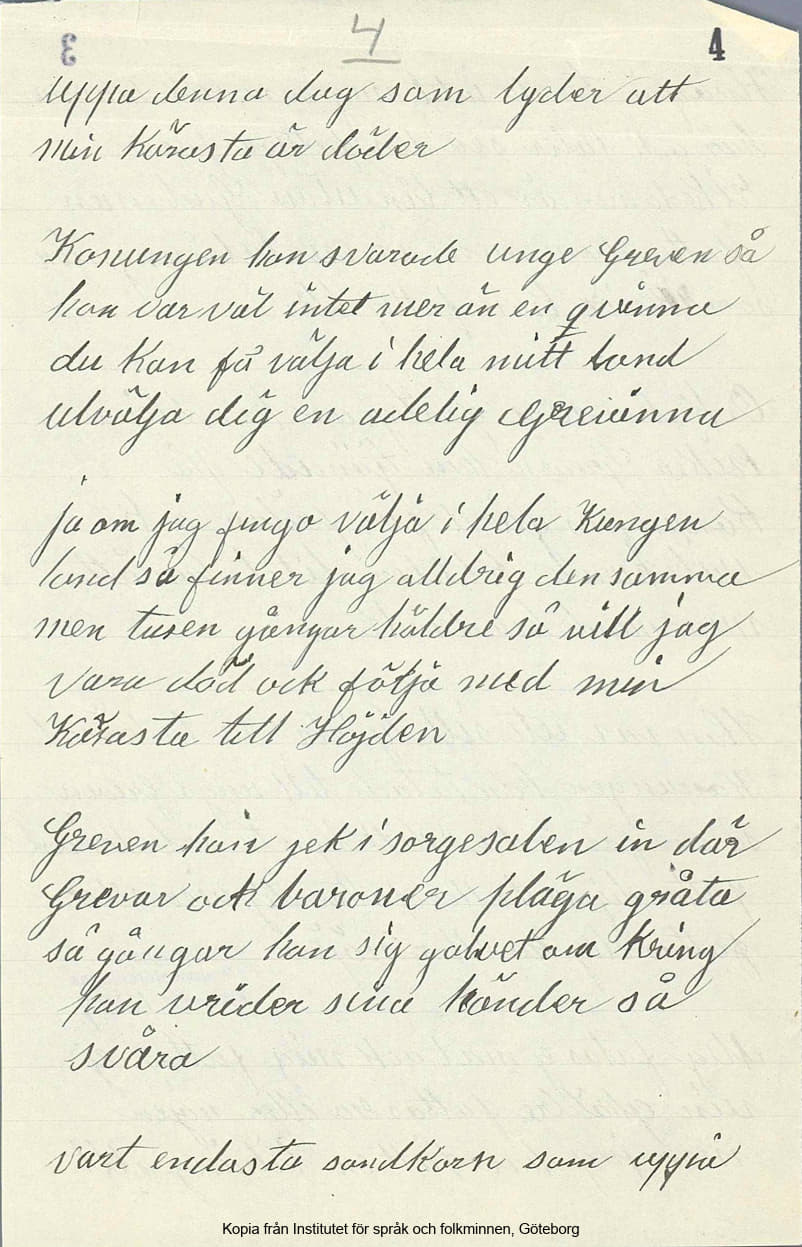 4
4
uppå denna dag som lyder att
min Kärasta är döder
Konungen han svarade unge Greven så
hon var väl intet mer än en qvinna
du kan få välja i hela mitt land
utvälja dig en adelig Grevinna
ja om jag fingo välja i hela Kungen
land så finner jag alldrig den samma
men tusen gångar häldre så vill jag
vara död ock följa med min
Kärasta till Höjden
Greven han jek i sorgesalen in där
Grevar ock baroner pläga gråta
så gångar han sig golvet om Kring
han vrider sina händer så
svåra
vart endasta sandkorn som uppå
Kopia från Institutet för språk och folkminnen, Göteborg